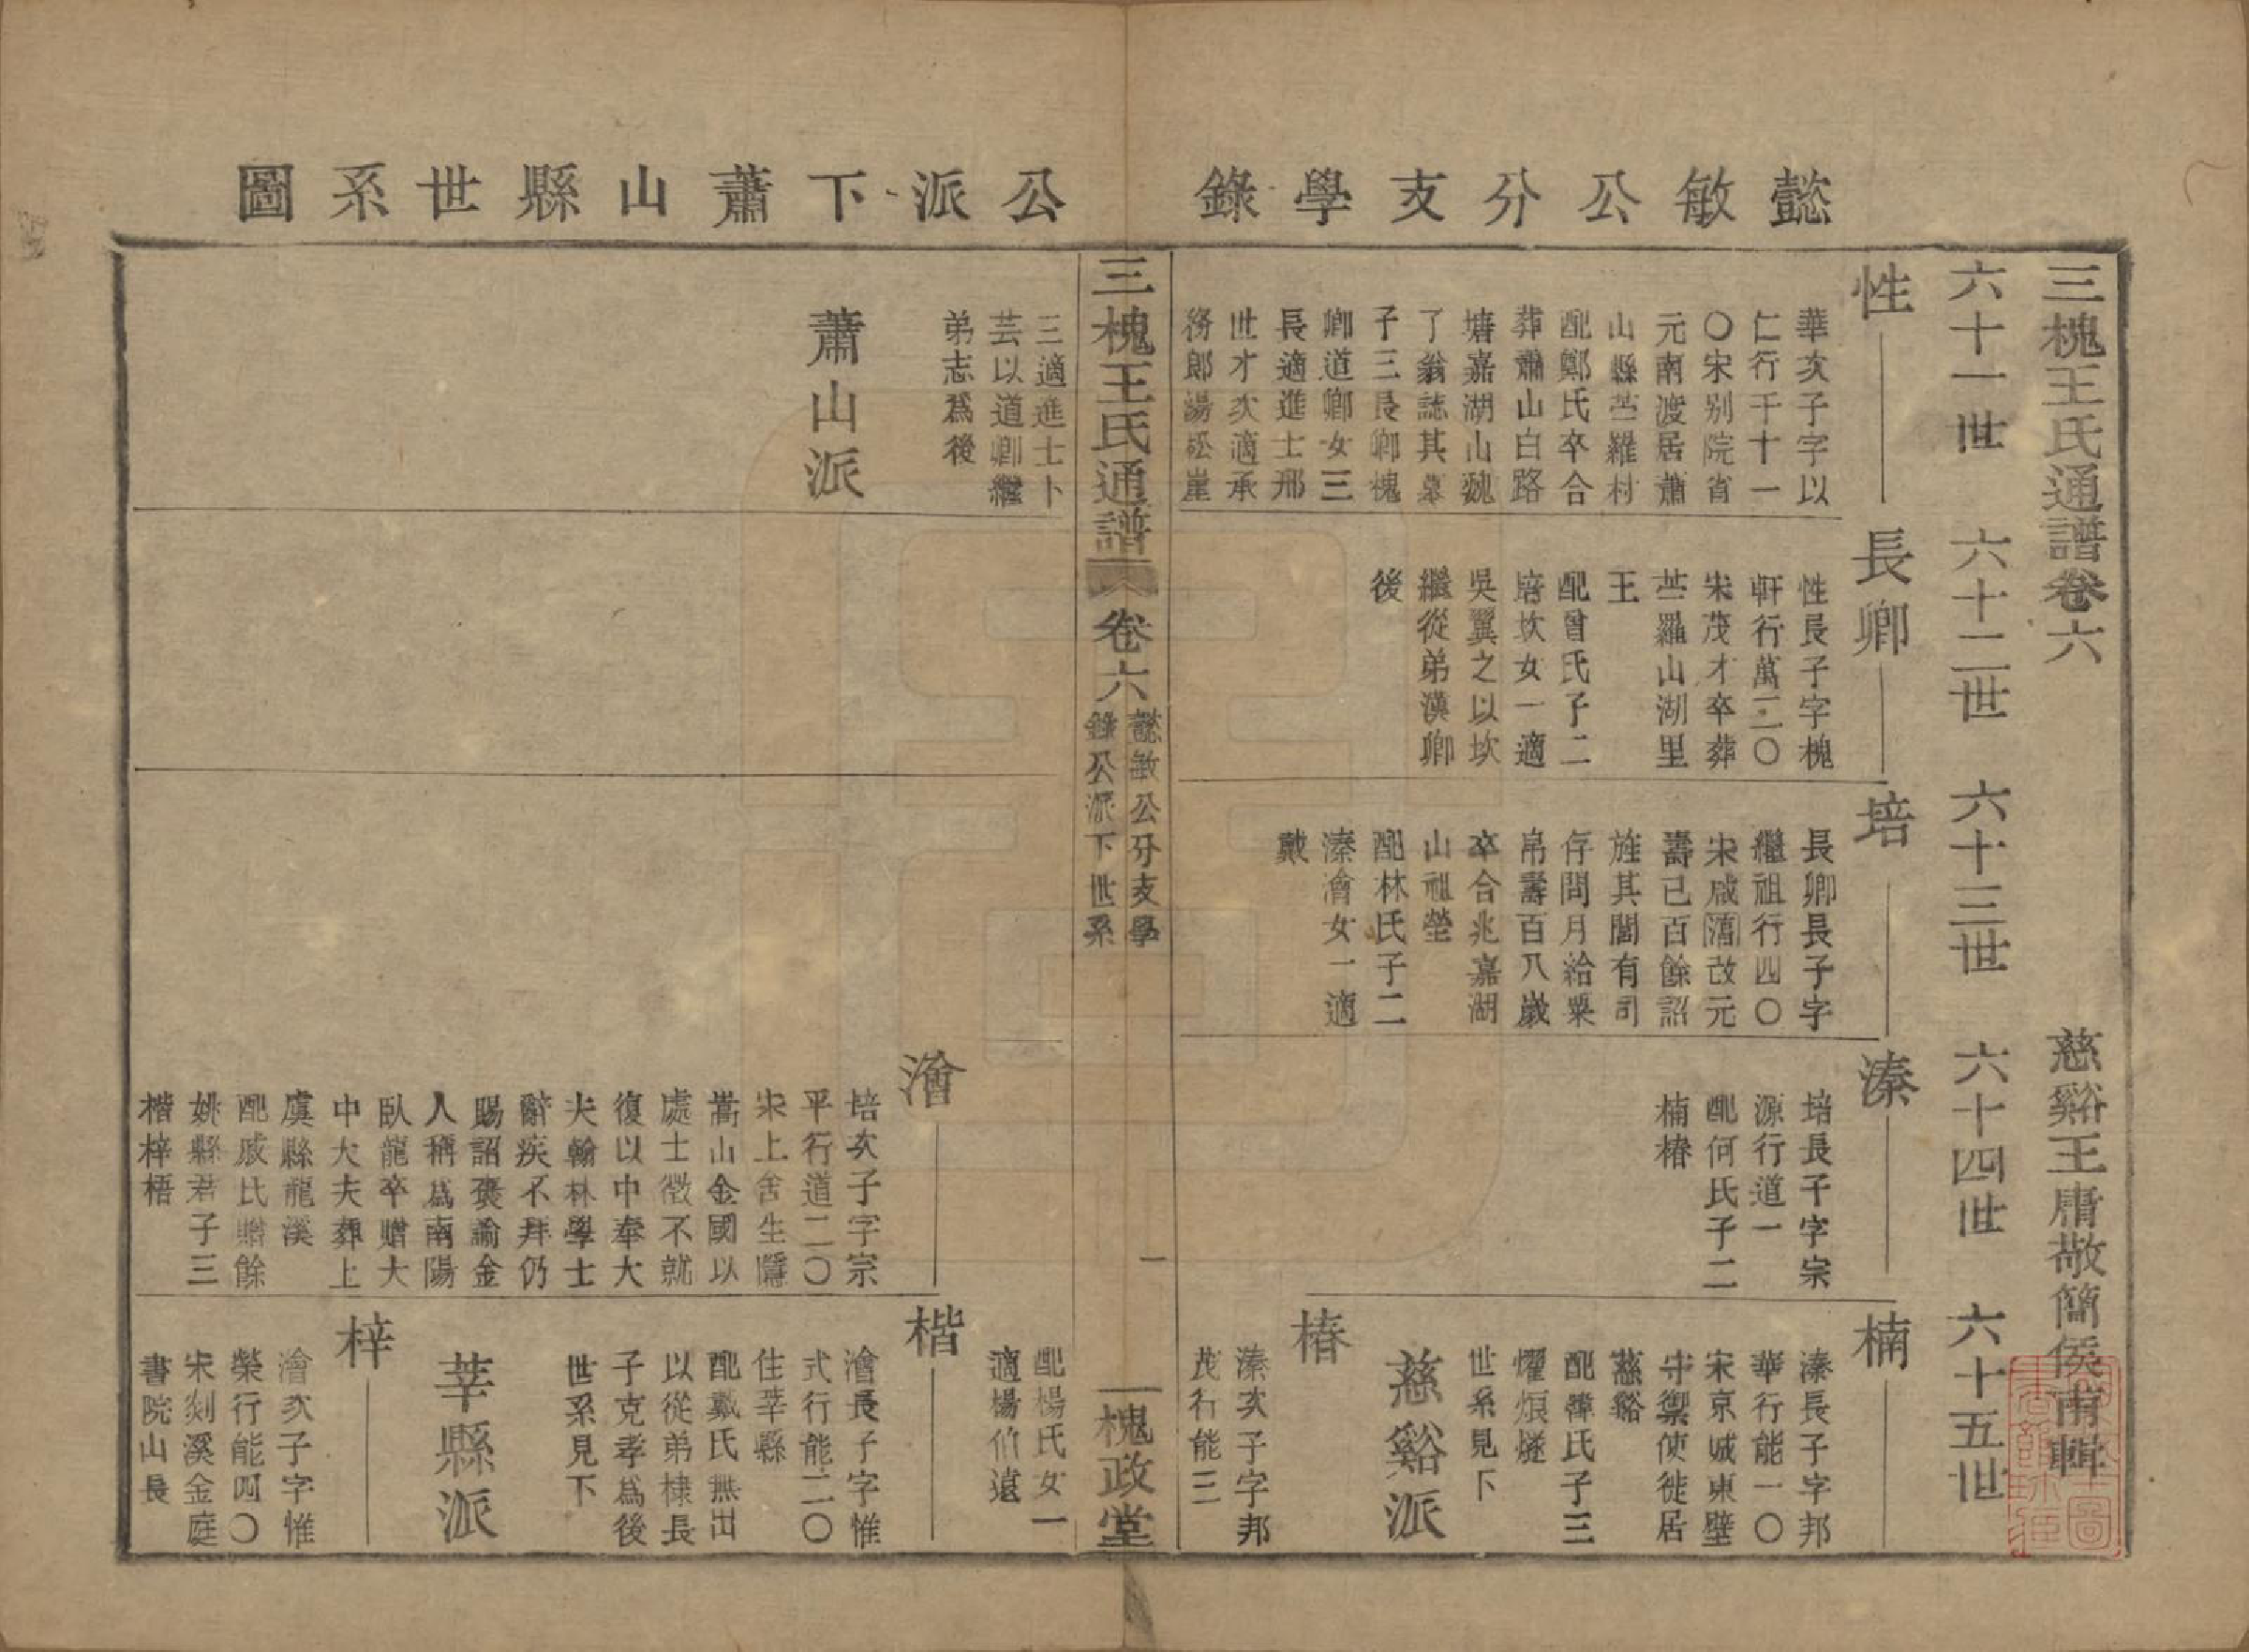 懿敏公分支學錄公派下蕭山縣世系圖
三槐王氏通譜卷六
慈谿王庸敬簡侯甫輯
六十一世
六十二世
六十三世
六十四世
六十五世
性
華次子字以
仁行千十一
〇宋别院省
元南渡居蕭
山縣苎羅村
配鄭氏卒合
葬蕭山白路
塘嘉湖山魏
了翁誌其墓
子三長卿槐
卿道卿女三
長適進士邢
世才次適承
務郎湯松崖
三適進士卜
芸以道卿繼
弟志爲後
蕭山派
長卿
性長子字槐
軒行萬二〇
宋茂才卒葬
苎羅山湖里
王
配曾氏子二
培坎女一適
吳翼之以坎
繼從弟漢卿
後
培
長卿長子字
繼祖行四〇
宋咸酒改元
壽已百餘詔
旌其閭有司
存問月給粟
帛壽百八歲
卒合兆嘉湖
山祖塋
配林氏子二
溱澮女一適
戴
溱
培長子字宗
源行道一
配何氏子二
楠椿
澮
培次子字宗
平行道二〇
宋上舍生隱
嵩山金國以
處士徵不就
復以中奉大
夫翰林學士
辭疾不拜仍
賜詔褒諭金
人稱爲南陽
臥龍卒贈大
中大夫葬上
虞縣龍溪
配戚氏贈餘
姚縣君子三
楷梓梧
楠
溱長子字邦
華行能一〇
宋京城東壁
守禦使徙居
慈谿
配韓氏子三
燿烺燧
世系見下
慈谿派
椿
溱次子字邦
茂行能三
配楊氏女一
適楊伯遠
楷
澮長子字惟
式行能二〇
住莘縣
配戴氏無出
以從弟棣長
子克孝爲後
世系見下
莘縣派
梓
澮次子字惟
榮行能四〇
宋剡溪金庭
書院山長
三槐王氏通譜
卷六
懿敏公分支學
錄公派下世系
一
槐政堂